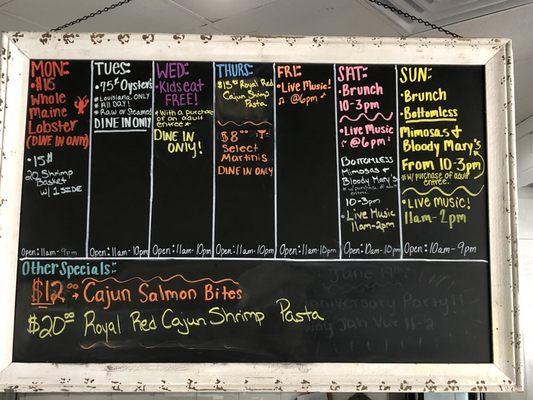 MON:
$15
Whole
Maine
Lobster
(DINE IN ONLY)
• 15$
20 Shrimp
Basket
w/ 1 SIDE
Open: 11am-9pm
TUES:
• 75¢ Oysters
* Louisiana ONLY
* All DAY!
* Raw or Steamed
DINE IN ONLY
Open: 11am-10pm
WED:
Kids eat
FREE!
* With a purchase
of an adult
entree *
DINE IN
ONLY!
Open: 11am-10pm
THURS:
$15.00 Royal Red
Cajun Shrimp
Pasta
$8.00
Select
Martinis
DINE IN ONLY
Open: 11am-10pm
FRI:
• Live Music!
@6pm
Open: 11am-10pm
SAT:
• Brunch
10-3pm
• Live Music
@ 6pm
Bottomless
Mimosas &
Bloody Mary's
* w/ purchase of adult
entree.
10-3pm
• Live Music
11am-2pm
Open: 10am-10pm
SUN:
• Brunch
• Bottomless
Mimosas &
Bloody Mary's
From 10-3pm
* w/ purchase of adult
entree.
• Live Music!
11am-2pm
Open: 10am-9pm
Other Specials:
$12.00 → Cajun Salmon Bites
$20.00 Royal Red Cajun Shrimp Pasta
June 19th
Anniversary Party!!
Jan Var 11-2